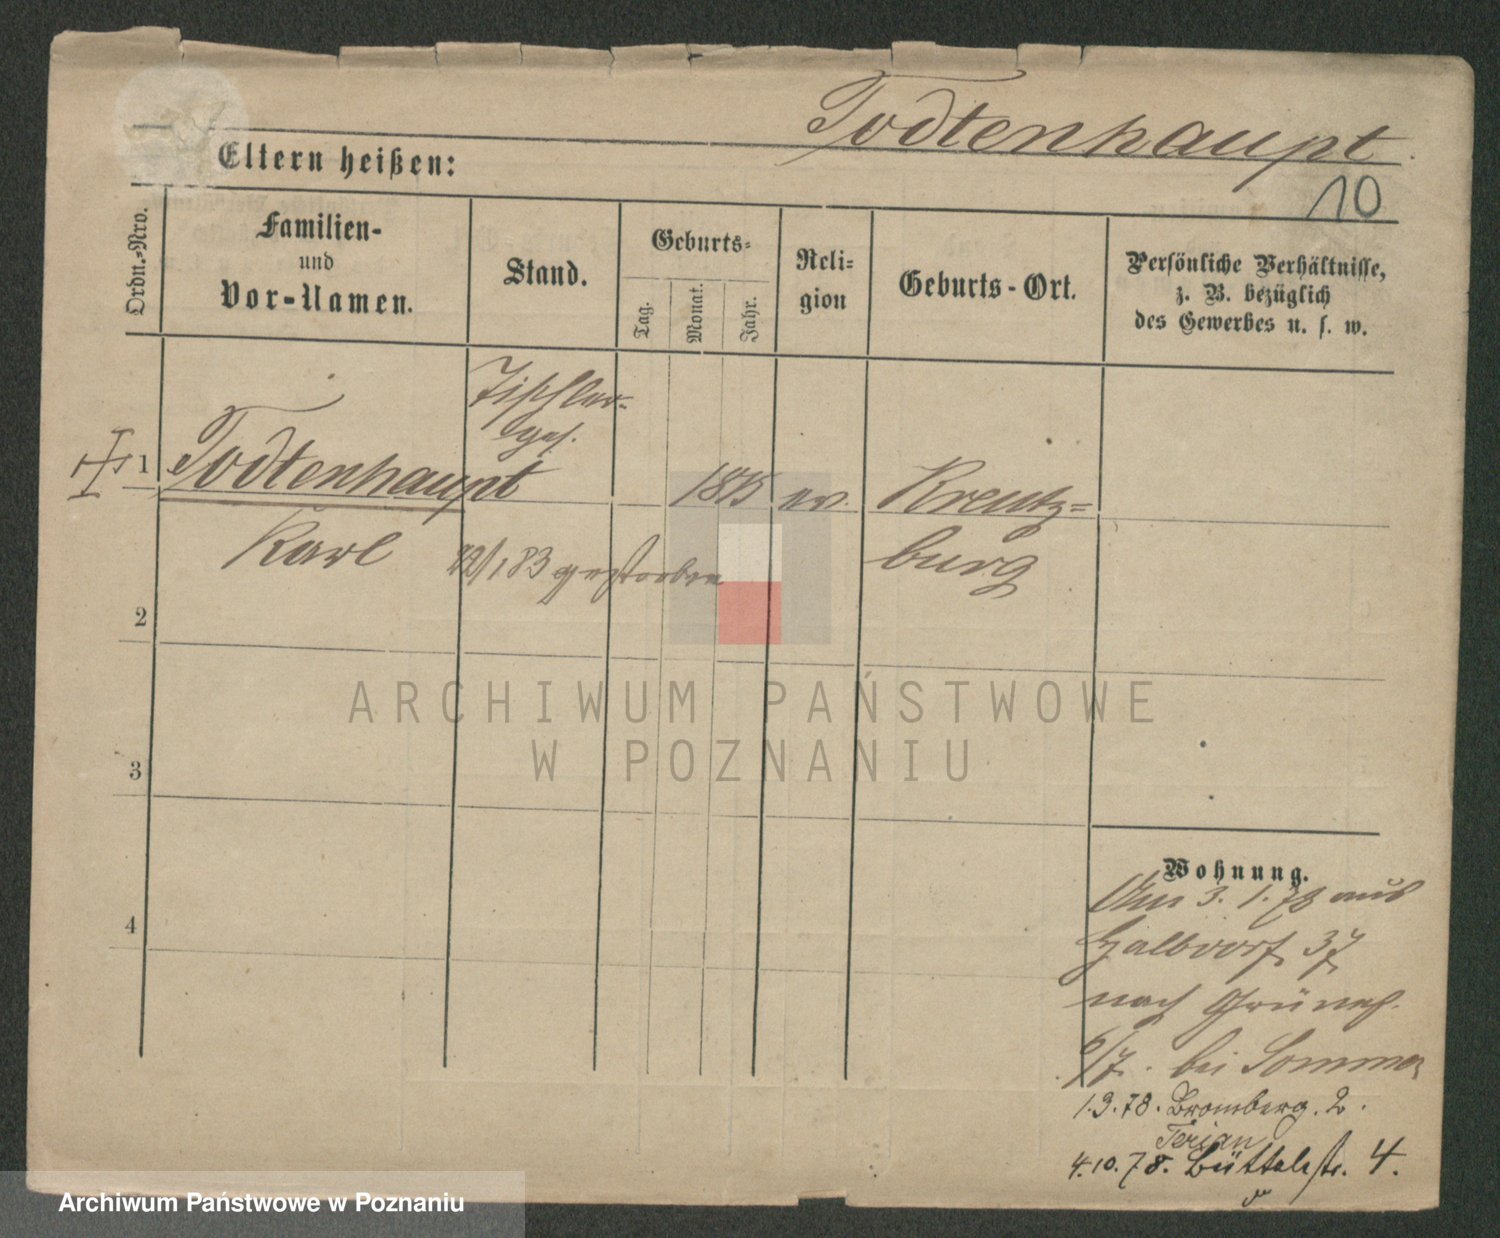 Todtenhaupt
10
Eltern heißen:
Ordn.-Nro.
Familien-
und
Vor-Namen.
Stand.
Geburts-
Tag.
Monat.
Jahr.
Reli-
gion
Geburts-Ort.
Persönliche Verhältnisse,
z. B. bezüglich
des Gewerbes u. s. w.
Tischler-
ges.
1
Todtenhaupt
1815
ev.
Kreutz-
Karl
burg
gestorben
2
3
4
ARCHIWUM PAŃSTWOWE
W POZNANIU
Wohnung.
Am 3. 1. 78 aus
Halbdorf 37
nach Grünest.
6/7. bei Sommer
1.9.78. Bromberg. 2.
4.10.78. Büttelstr. 4.
Archiwum Państwowe w Poznaniu